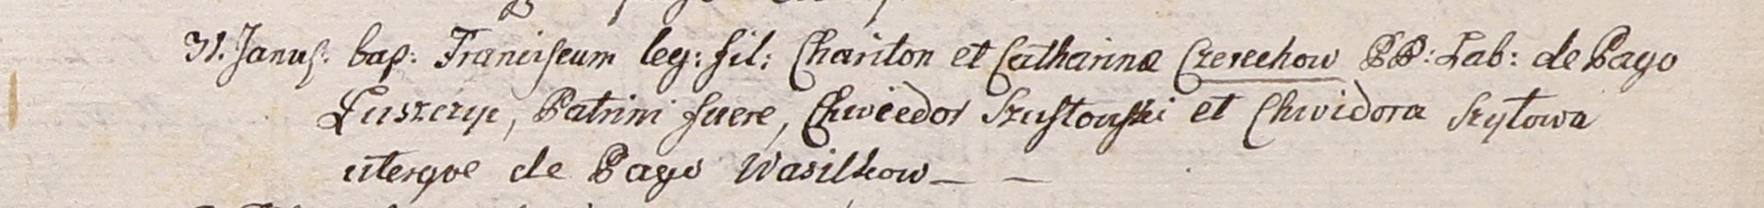 31. Janus: bap: Franciscum leg: fil: Chariton et Catharinæ Czerechow PP: Lab: de Pago
Luszczyc, Patrini fuere, Chwiedor Szustowski et Chwidora Szytowa
uterque de Pago Wasilkow — —